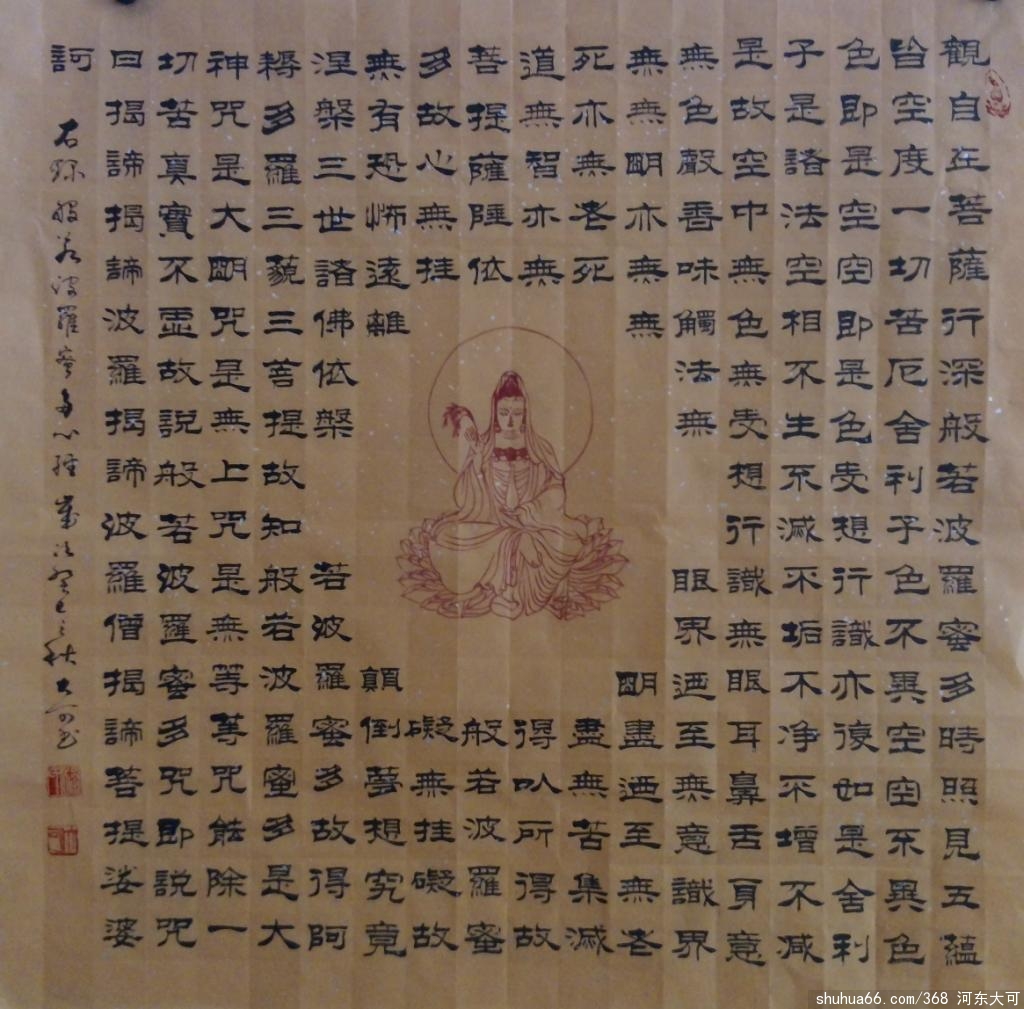 觀自在菩薩行深般若波羅蜜多時照見五蘊
皆空度一切苦厄舍利子色不異空空不異色
色即是空空即是色受想行識亦復如是舍利
子是諸法空相不生不滅不垢不净不增不减
是故空中無色無受想行識無眼耳鼻舌身意
無色聲香味觸法無眼界迺至無意識界
無無明亦無無明盡迺至無老
死亦無老死盡無苦集滅
道無智亦無得以所得故
菩提薩埵依般若波羅蜜
多故心無挂礙無挂礙故
無有恐怖遠離顛倒夢想究竟
涅槃三世諸佛依槃若波羅蜜多故得阿
耨多羅三藐三菩提故知般若波羅蜜多是大
神咒是大明咒是無上咒是無等等咒能除一
切苦真實不虛故說般若波羅蜜多咒即說咒
曰揭諦揭諦波羅揭諦波羅僧揭諦菩提娑婆
訶
右錄般若波羅蜜多心經歲次癸巳之秋大可書
shuhua66.com/368 河东大可